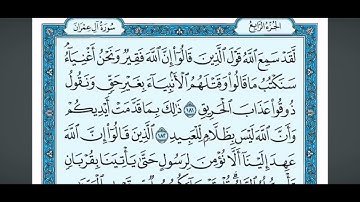 الجزء الرابع
سورة آل عمران
لَّقَدْ سَمِعَ اللَّهُ قَوْلَ الَّذِينَ قَالُوا إِنَّ اللَّهَ فَقِيرٌ وَنَحْنُ أَغْنِيَاءُ
سَنَكْتُبُ مَا قَالُوا وَقَتْلَهُمُ الْأَنبِيَاءَ بِغَيْرِ حَقٍّ وَنَقُولُ
ذُوقُوا عَذَابَ الْحَرِيقِ ١٨١ ذَٰلِكَ بِمَا قَدَّمَتْ أَيْدِيكُمْ
وَأَنَّ اللَّهَ لَيْسَ بِظَلَّامٍ لِّلْعَبِيدِ ١٨٢ الَّذِينَ قَالُوا إِنَّ اللَّهَ
عَهِدَ إِلَيْنَا أَلَّا نُؤْمِنَ لِرَسُولٍ حَتَّىٰ يَأْتِيَنَا بِقُرْبَانٍ